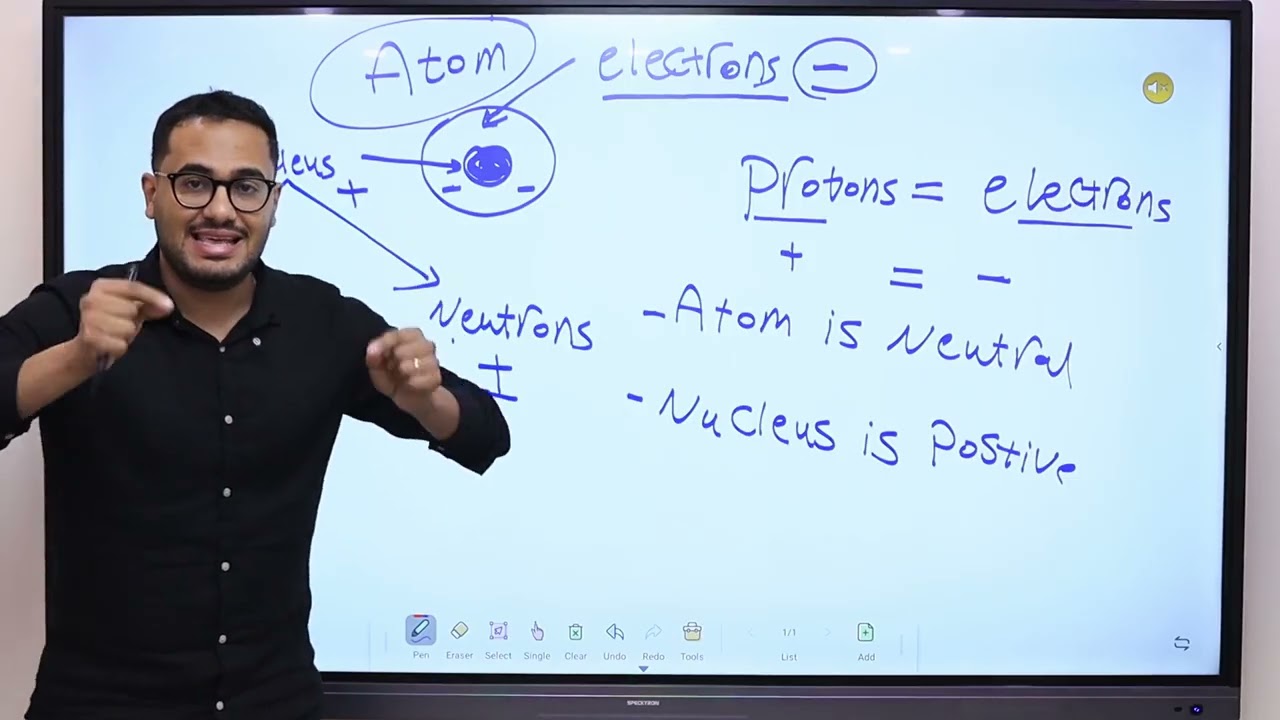 Atom
electrons -
cleus +
- -
Protons = electrons
+ = -
Neutrons
±
- Atom is Neutral
- Nucleus is Postive
Pen Eraser Select Single Clear Undo Redo Tools 1/1 List Add
SPECKTRON